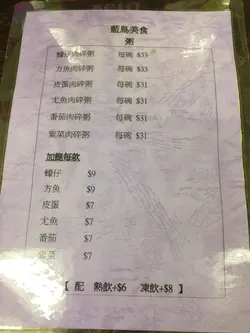 藍鳥美食
粥
蠔仔肉碎粥 每碗 $33
方魚肉碎粥 每碗 $33
皮蛋肉碎粥 每碗 $31
尤魚肉碎粥 每碗 $31
番茄肉碎粥 每碗 $31
紫菜肉碎粥 每碗 $31
加餸每款
蠔仔 $9
方魚 $9
皮蛋 $7
尤魚 $7
番茄 $7
紫菜 $7
【 配 熱飲+$6 凍飲+$8 】